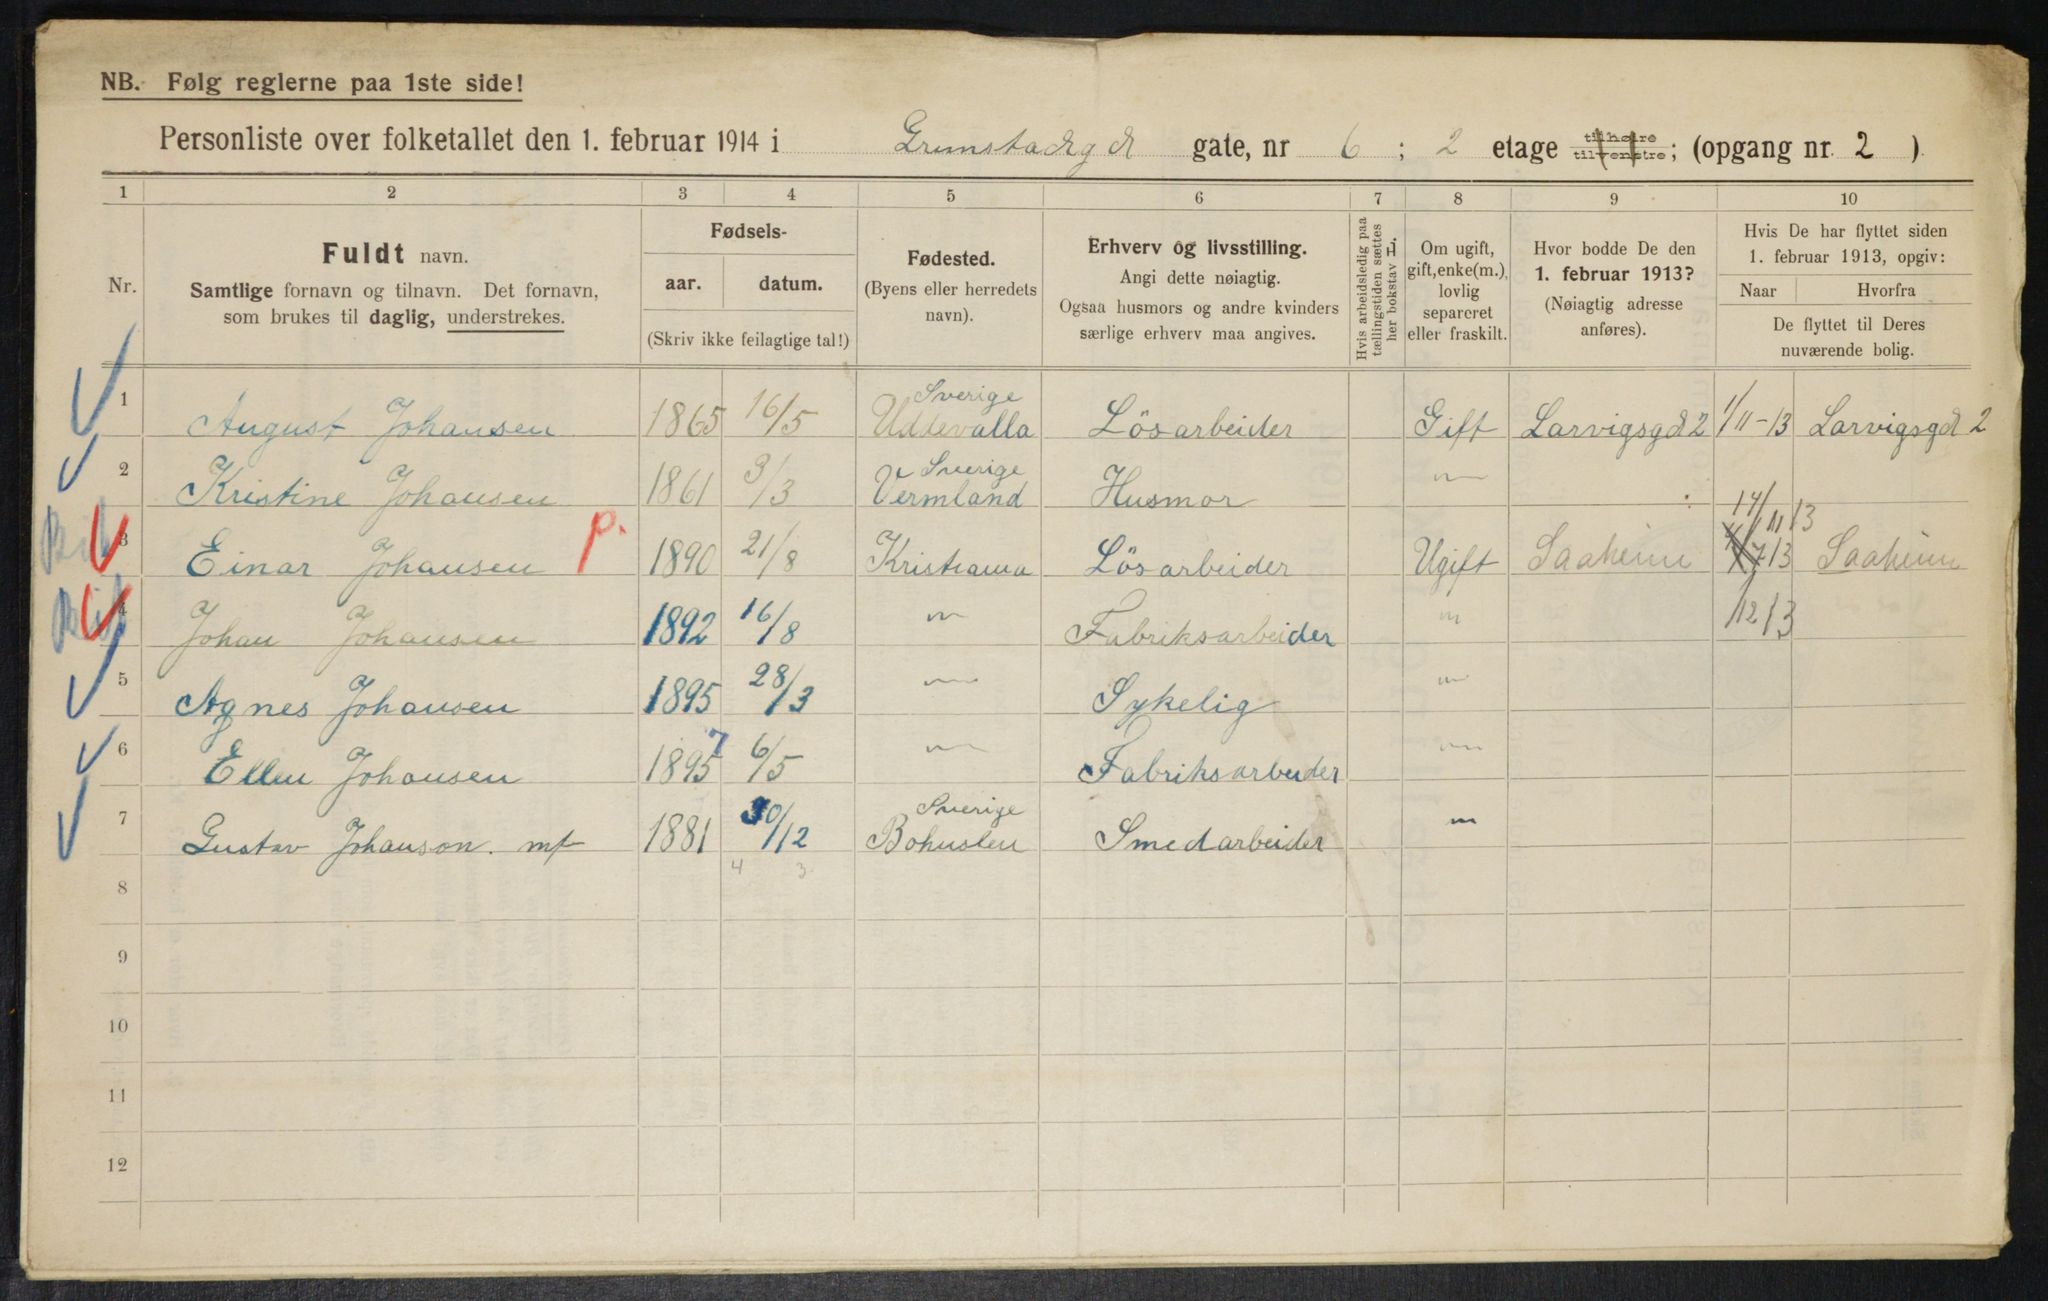 NB. Følg reglerne paa 1ste side!
Personliste over folketallet den 1. februar 1914 i Grimstadgd gate, nr 6 ; 2 etage tilhøire tilvenstre; (opgang nr. 2 ).
1 2 3 4 5 6 7 8 9 10
Nr.
Fuldt navn.
Samtlige fornavn og tilnavn. Det fornavn,
som brukes til daglig, understrekes.
Fødsels-
aar. datum.
(Skriv ikke feilagtige tal!)
Fødested.
(Byens eller herredets
navn).
Erhverv og livsstilling.
Angi dette nøiagtig.
Ogsaa husmors og andre kvinders
særlige erhverv maa angives.
Hvis arbeidsledig paa
tællingstiden sættes
her bokstav L.
Om ugift,
gift, enke(m.),
lovlig
separeret
eller fraskilt.
Hvor bodde De den
1. februar 1913?
(Nøiagtig adresse
anføres).
Hvis De har flyttet siden
1. februar 1913, opgiv:
Naar Hvorfra
De flyttet til Deres
nuværende bolig.
1 August Johansen 1865 16/5 Sverige Uddevalla Lösarbeider Gift Larvigsgd 2 1/11-13 Larvigsgd 2
2 Kristine Johansen 1861 3/3 Sverige Vermland Husmor 〃
3 Einar Johansen p. 1890 21/8 Kristiania Lösarbeider Ugift Saaheim 14/11 13 Saaheim
4 Johan Johansen 1892 16/8 〃 Fabriksarbeider 〃 /12 13
5 Agnes Johansen 1895 28/3 〃 Sykelig 〃
6 Ellen Johansen 1895 7 6/5 〃 Fabriksarbeider 〃
7 Gustav Johanson. mf 1881 30/12 Sverige Bohuslen Smedarbeider 〃
4 3
8
9
10
11
12